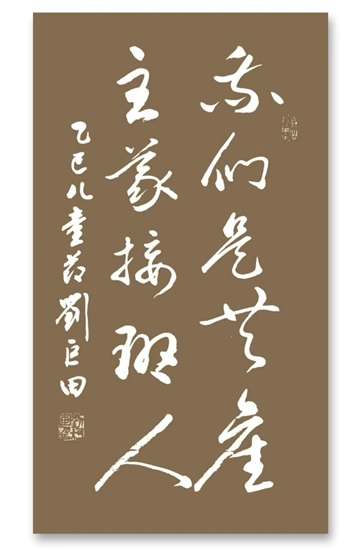 我们是共产
主义接班人
乙巳儿童节刘巨田